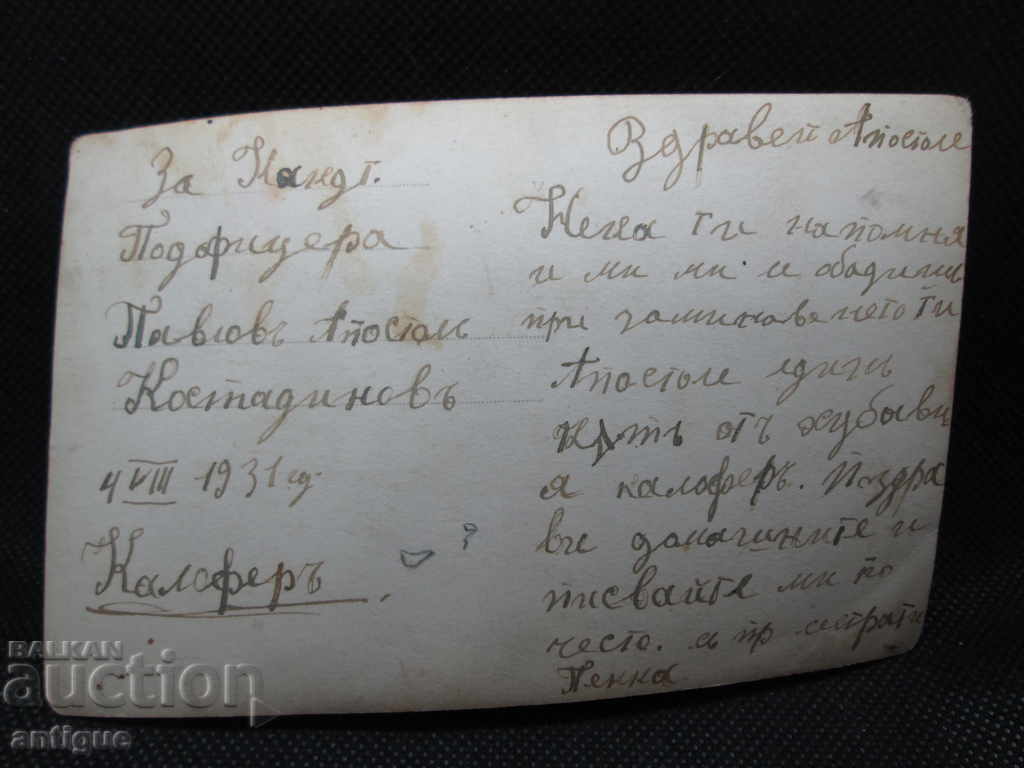 За Кандт.
Подофицера
Павловъ Апостол
Костадиновъ
4 VIII 1931 год
Калоферъ
?
Здравей Апостоле
Нека ти напомня
и ми ми и
при заминаванетο ти
Апостоле единъ
кътъ отъ хубави
я калоферъ. Поздра
ви домашните и
писвайте ми по
често. и пр
Пенка
BALKAN
auction
antique